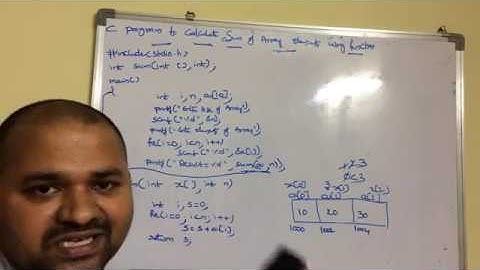 C program to Calculate Sum of Array elements using function
#include<stdio.h>
int sum(int [], int);
main()
{
int i, n, a[10];
printf("Enter size of Array");
scanf("%d", &n);
printf("Enter elements of Array");
for(i=0; i<n; i++)
scanf("%d", &a[i]);
printf("Result=%d", sum(a, n));
(int x[], int n)
int i, s=0;
for(i=0; i<n; i++)
s=s+a[i];
return s;
0<3
x[0]
a[0] a[1]
10 20 30
1000 1002 1004